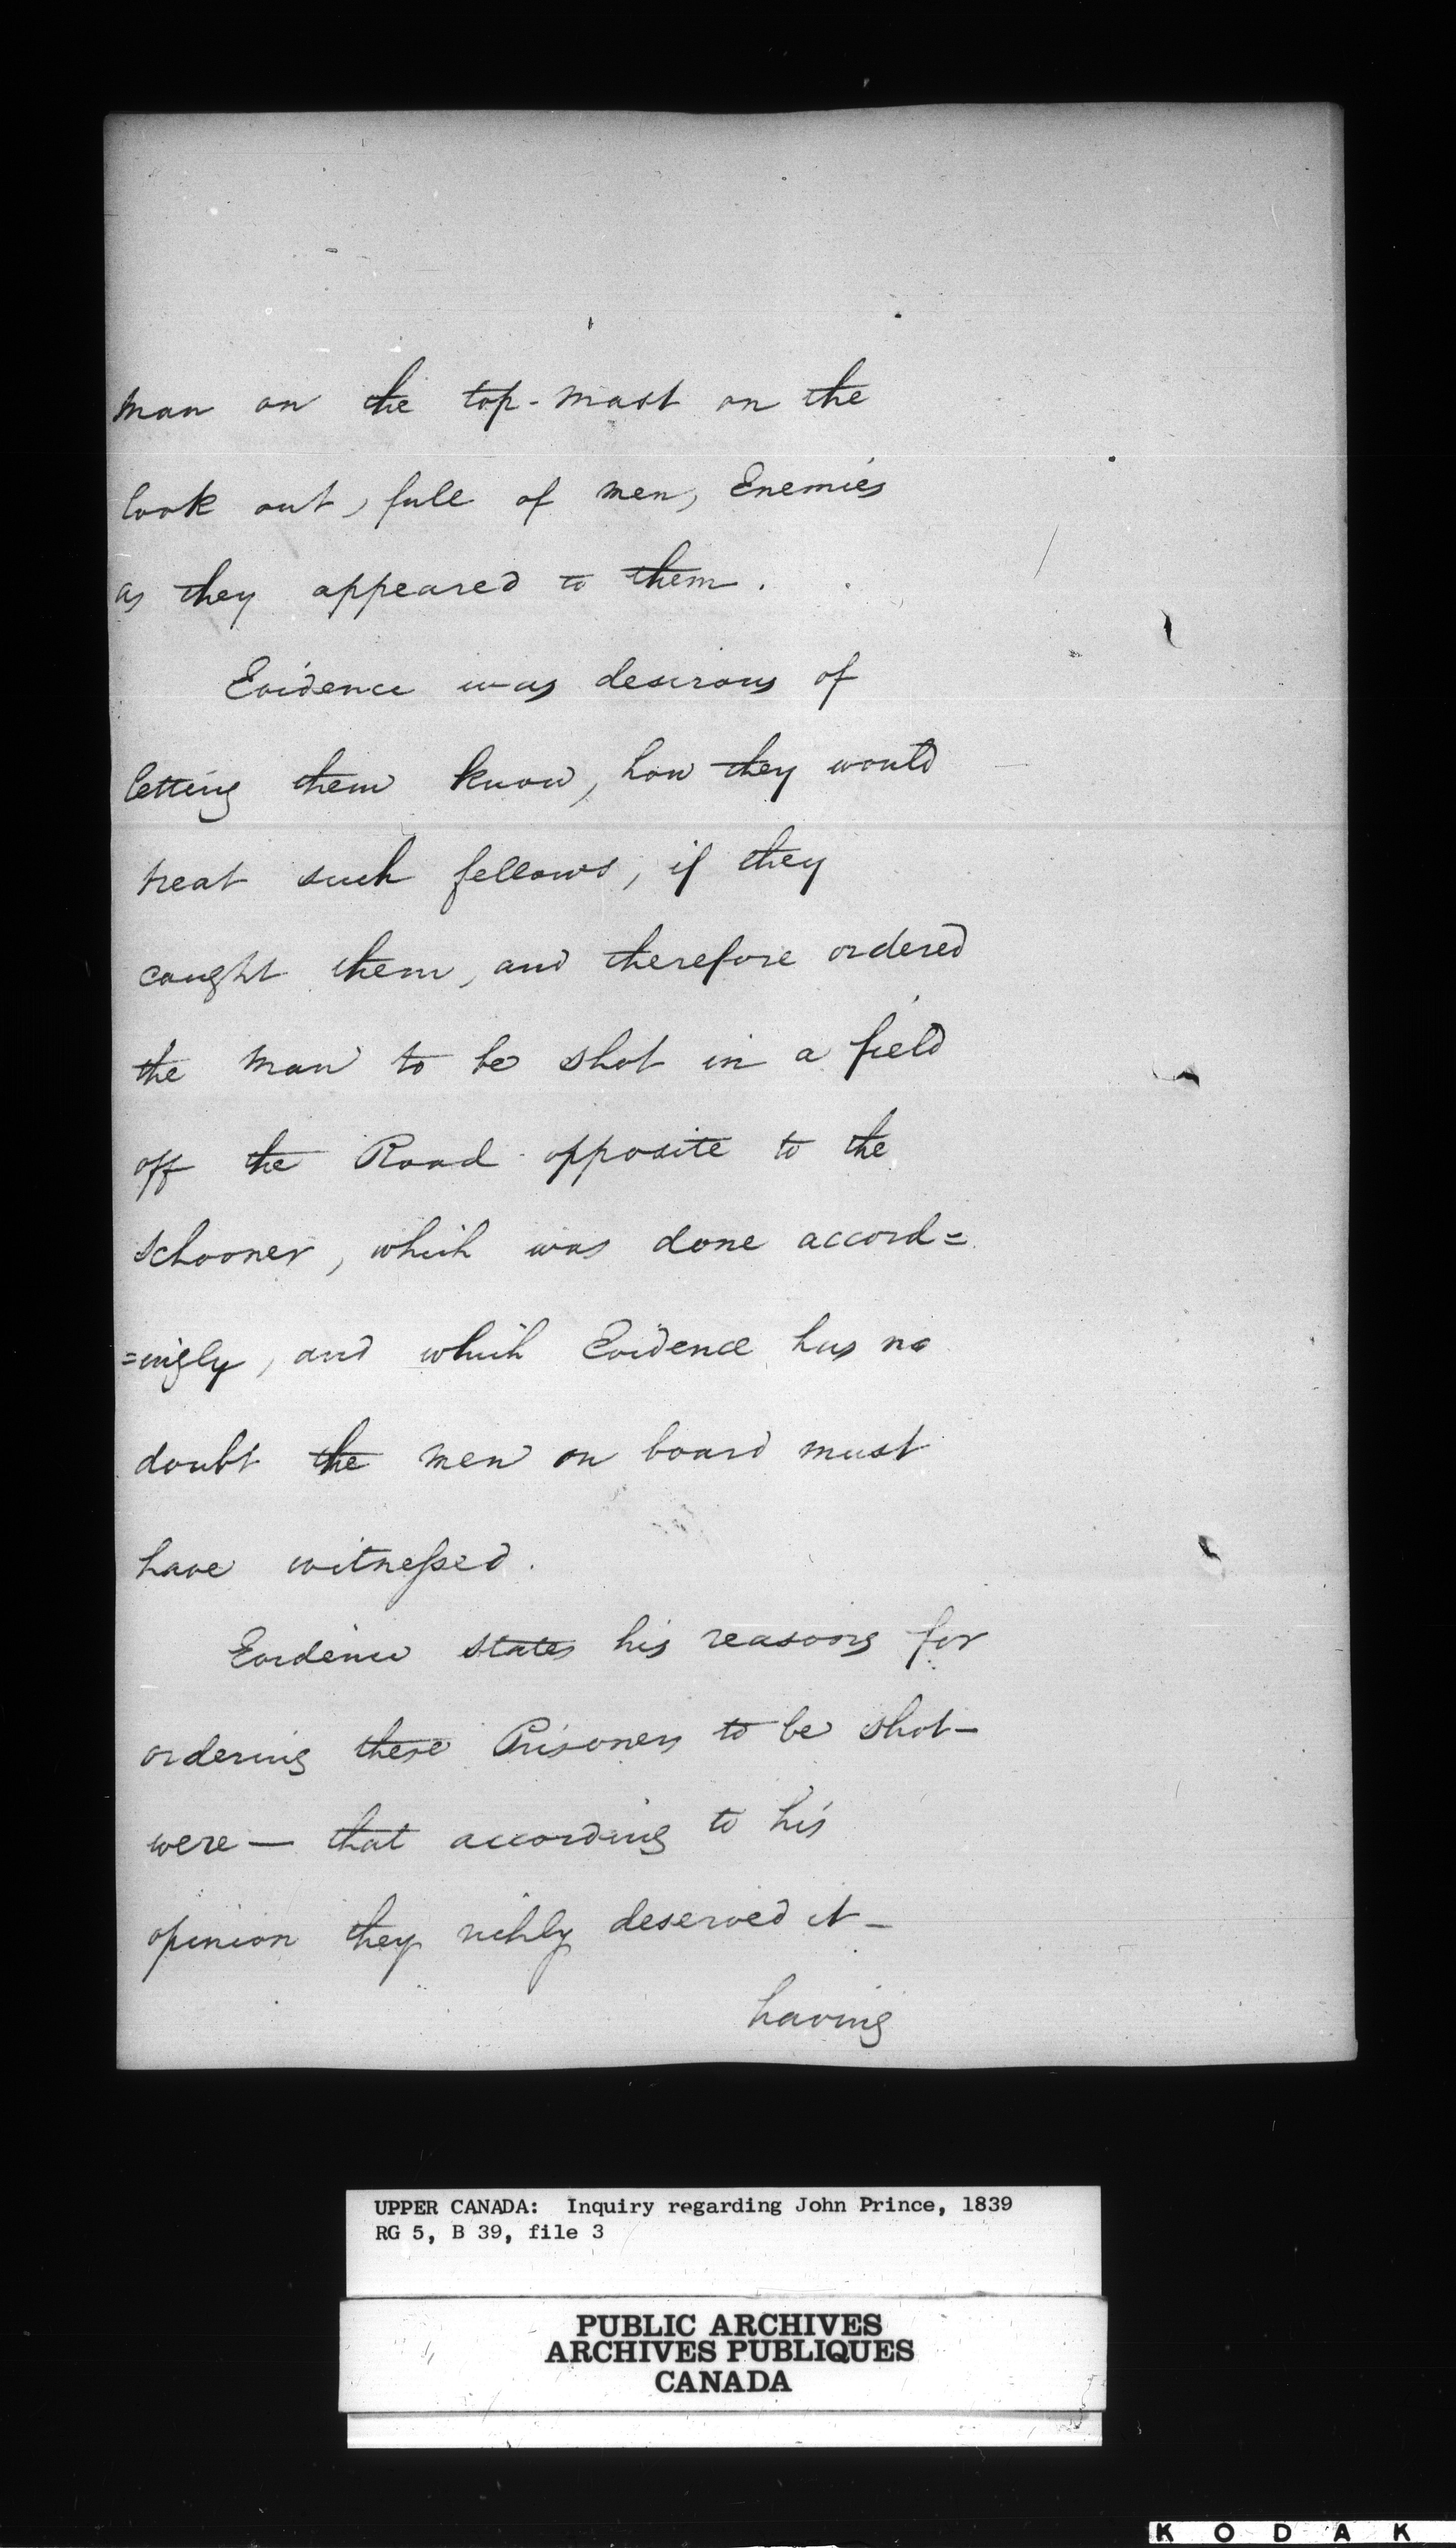 man on the top-mast on the
look out, full of men, Enemies
as they appeared to them.
Evidence was desirous of
letting them know, how they would
treat such fellows, if they
caught them, and therefore ordered
the man to be shot in a field
off the Road opposite to the
schooner, which was done accord=
=ingly, and which Evidence has no
doubt the men on board must
have witneſsed.
Evidence states his reasons for
ordering these Prisoners to be shot-
were — that according to his
opinion they richly deserved it -
having
UPPER CANADA: Inquiry regarding John Prince, 1839
RG 5, B 39, file 3
PUBLIC ARCHIVES
ARCHIVES PUBLIQUES
CANADA
KODAK